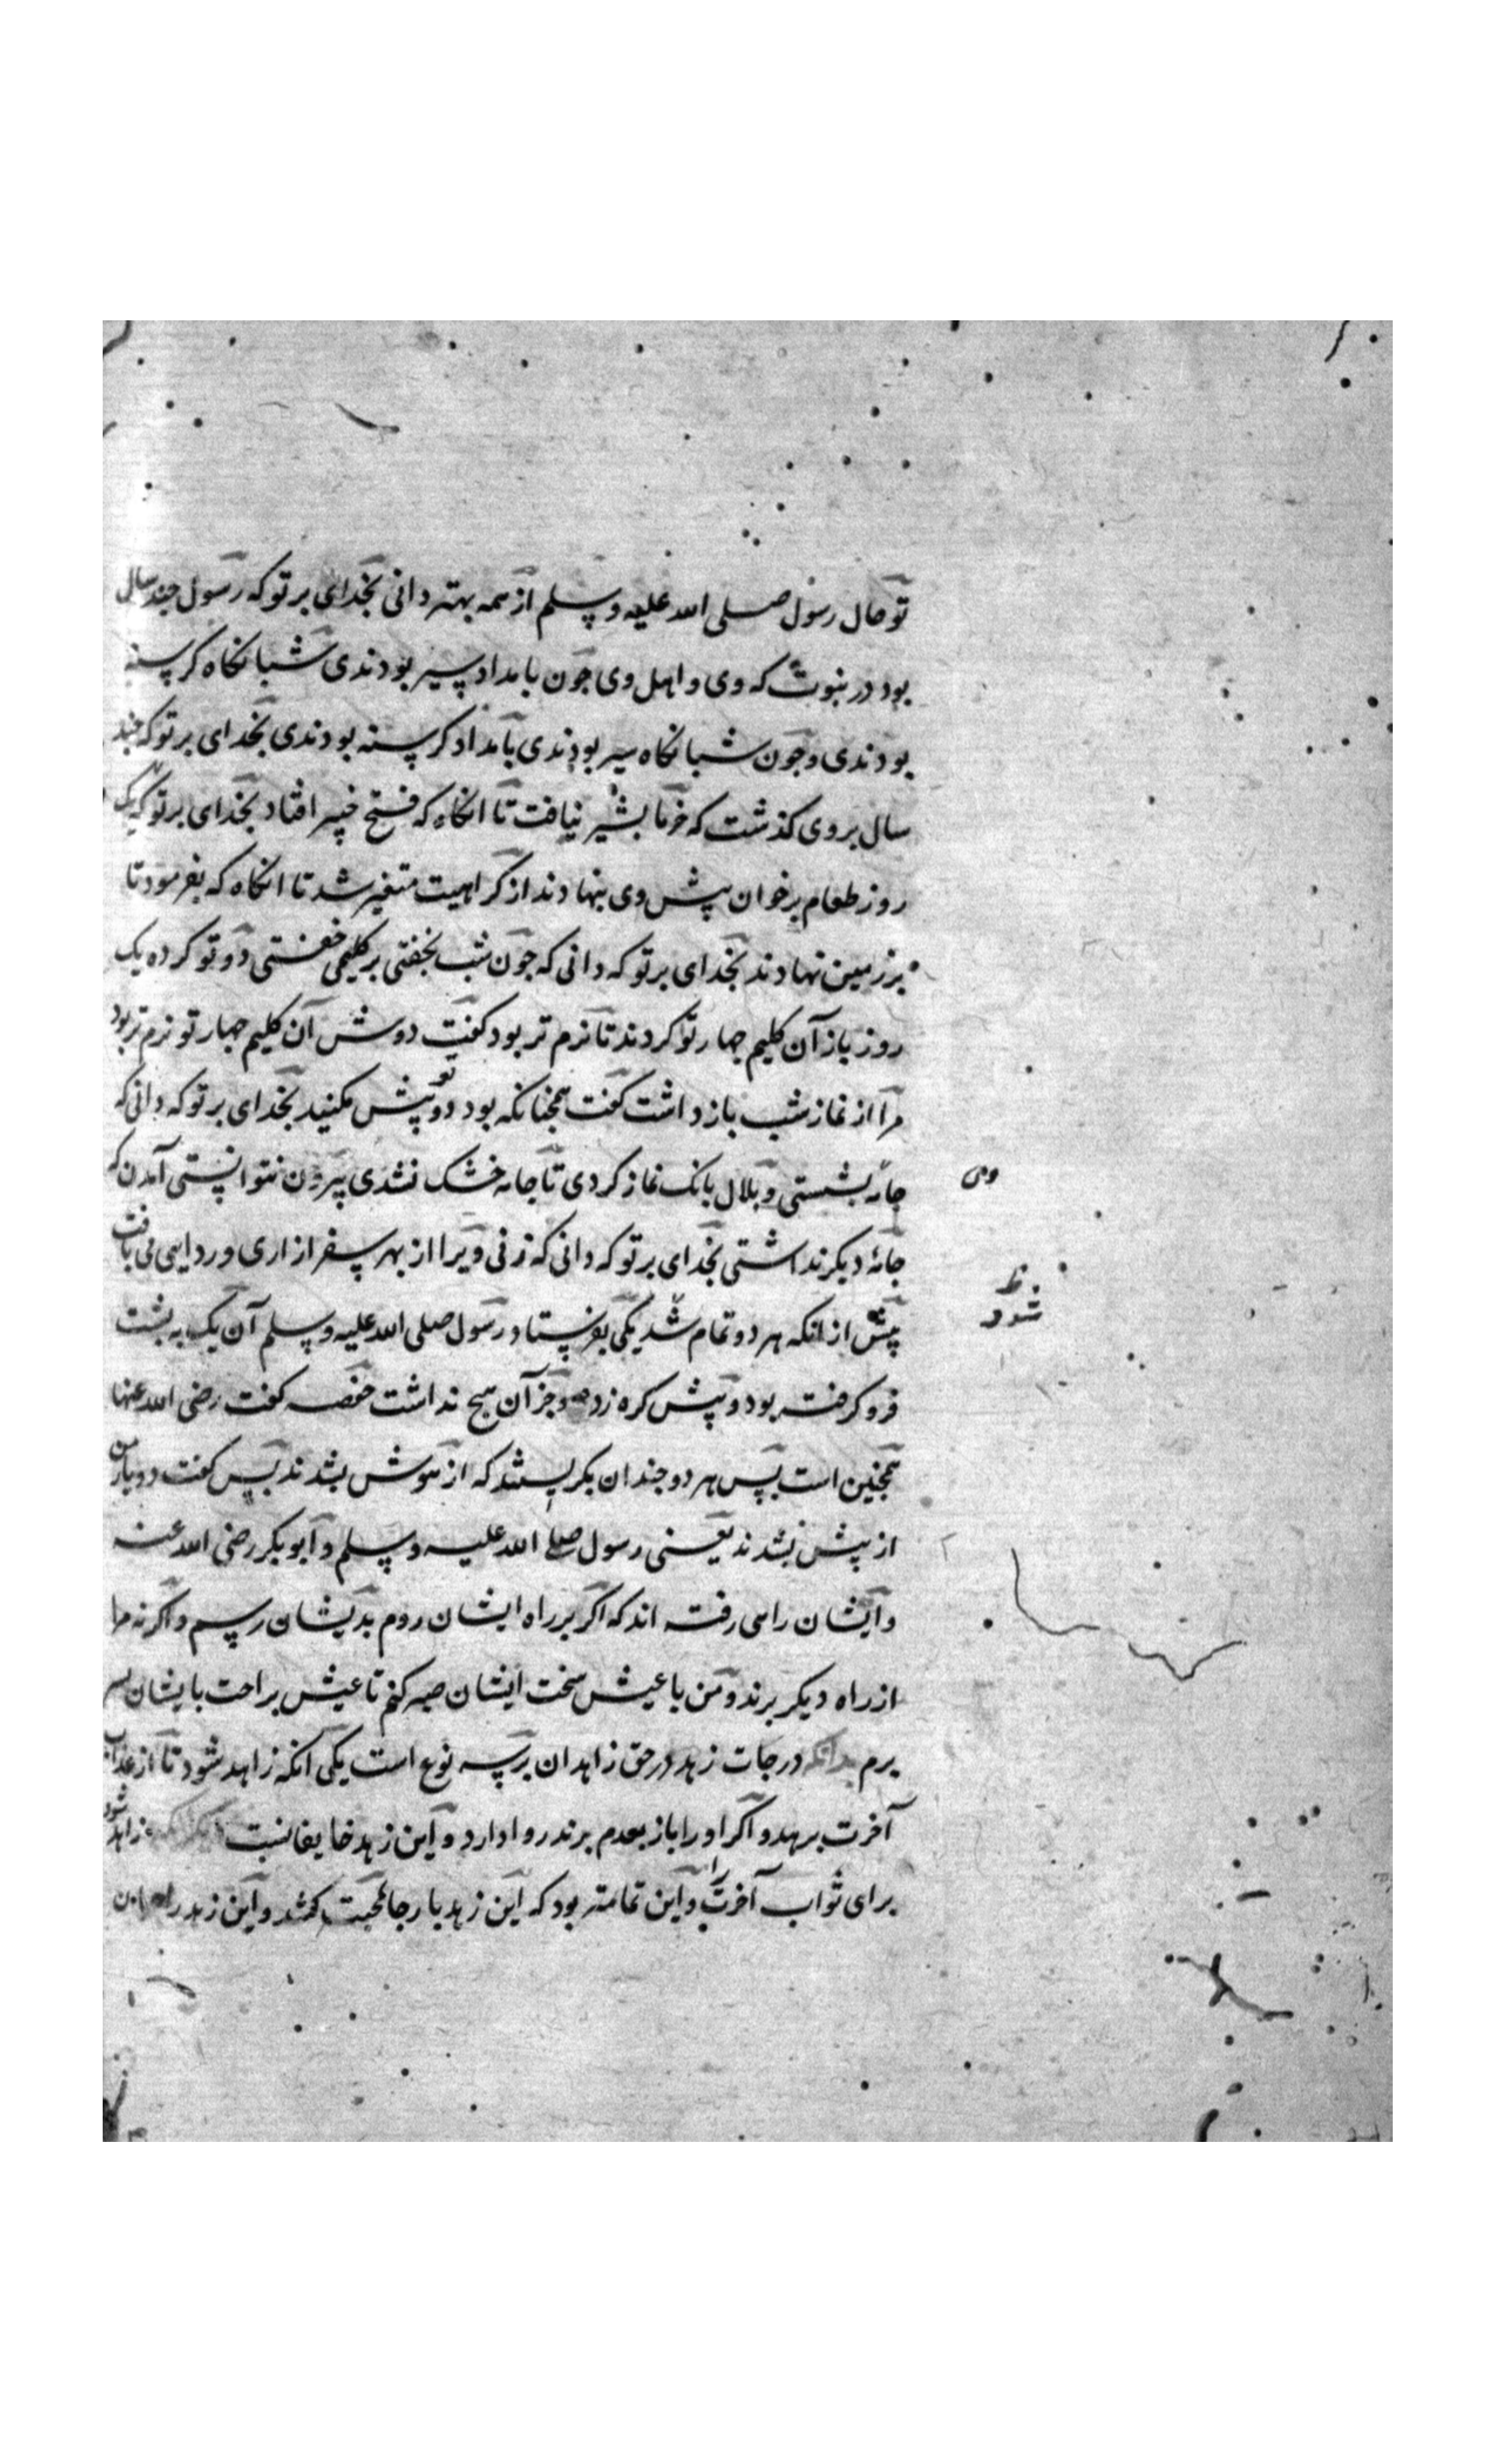 تو حال رسول صلی الله علیه وسلم از همه بهتر دانی بخدای بر تو که رسول چند سال
بود در نبوت که وی و اهل وی جون بامداد سیر بودندی شبانکاه کرسنه
بودندی و جون شبانکاه سیر بودندی بامداد کرسنه بودندی بخدای بر تو که چند
سال بروی کذشت که خرما بشیر نیافت تا انکاه که فتح خیبر افتاد بخدای بر تو که یک
روز طعام بر خوان پیش وی بنهادند از کراهیت متغیر شد تا انکاه که بفرمود تا
بر زمین نهادند بخدای بر تو که دانی که جون شب بخفتی بر کلیمی خفتی دو تو کرده یک
روز باز آن کلیم جهار تو کردند تا نرم تر بود کفت دوش آن کلیم جهار تو نرم تر بود
مرا از نماز شب باز داشت کفت همجنانکه بود دو تو پیش مکنید بخدای بر تو که دانی که
جامه بشستی و بلال بانک نماز کردی تا جامه خشک نشدی بیرون نتوانستی آمدن که
وی
جامۀ دیکر نداشتی بخدای بر تو که دانی که زنی ویرا از بهر سفر ازاری و ردایی می بافت
پیش از انکه هر دو تمام شد یکی بفرستاد رسول صلی الله علیه وسلم آن یک به بشت
ظ
شود
فرو کرفته بود و پیش کره زده و جز آن هیج نداشت حفصه کفت رضی الله عنها
همجنین است پس هر دو جندان بکریستند که از هوش بشدند پس کفت دو یار من
از پیش بشدند یعنی رسول صلی الله علیه وسلم و ابوبکر رضی الله عنه
و ایشان راهی رفته اند که اکر بر راه ایشان روم بدیشان رسم و اکر نه مرا
از راه دیکر برند و من با عیش سخت ایشان صبر کنم تا عیش براحت با یشان بسر
برم بدانکه درجات زهد در حق زاهدان بر سه نوع است یکی آنکه زاهد شود تا از عذاب
آخرت برهد و اکر او را باز بعدم برند روا دارد و این زهد خایفانست زاهد شود
برای ثواب آخرت را و این تمامتر بود که این زهد بار جا محبت کشد و این زهد